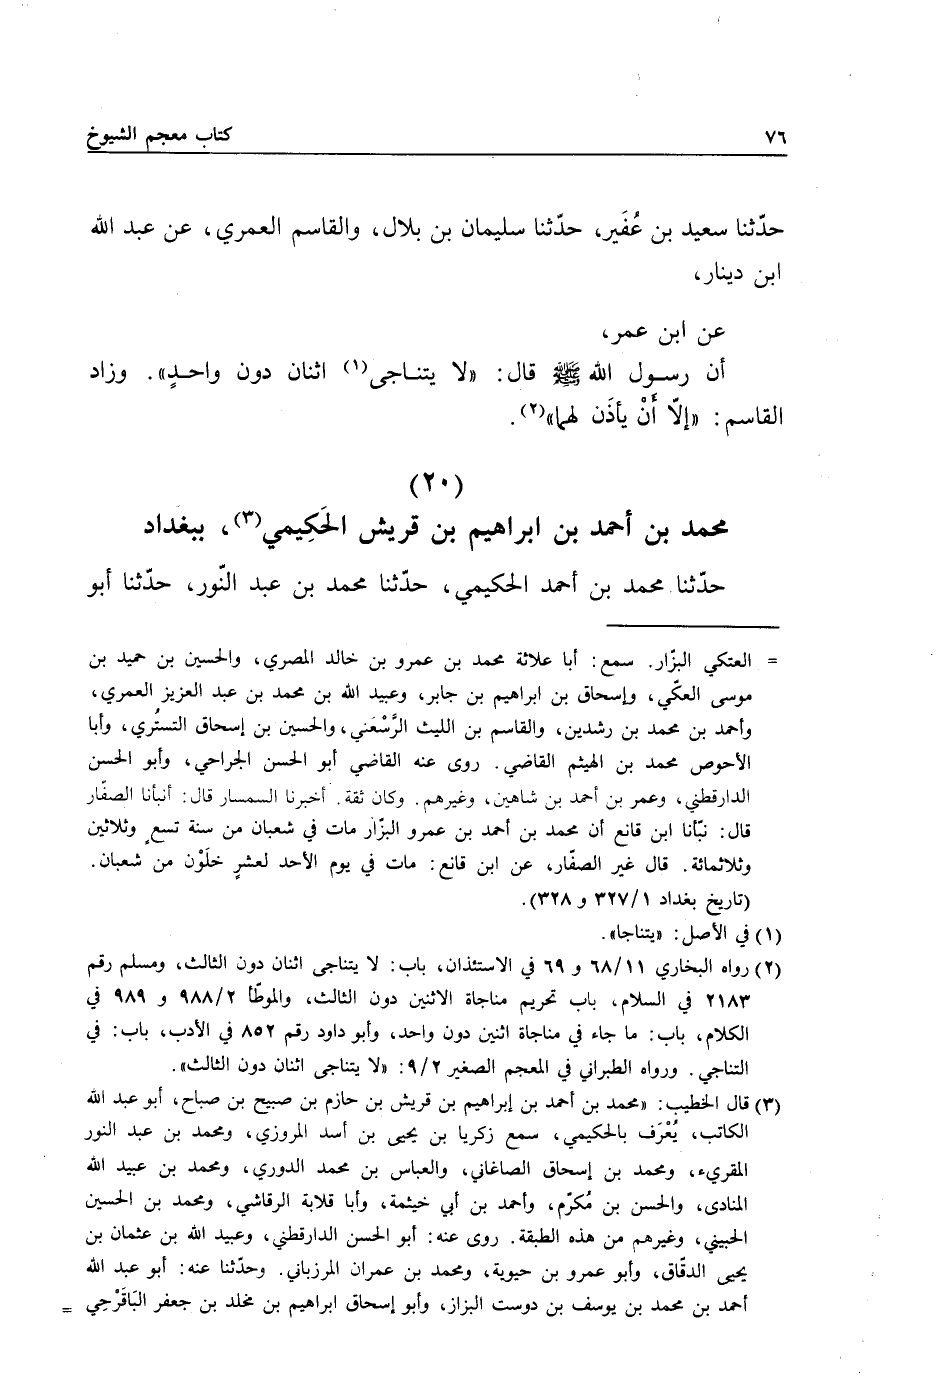 ٧٦ كتاب معجم الشيوخ
حدّثنا سعيد بن عُفَير، حدّثنا سليمان بن بلال، والقاسم العمري، عن عبد الله
ابن دينار،
عن ابن عمر،
أن رسول الله ﷺ قال: «لا يتناجى(١) اثنان دون واحدٍ». وزاد
القاسم: «إلّا أَنْ يأذَن لهما»(٢).
(٢٠)
محمد بن أحمد بن ابراهيم بن قريش الحَكِيمي(٣)، ببغداد
حدّثنا محمد بن أحمد الحكيمي، حدّثنا محمد بن عبد النّور، حدّثنا أبو
= العتكي البزّار. سمع: أبا علاثة محمد بن عمرو بن خالد المصري، والحسين بن حميد بن
موسى العكّي، وإسحاق بن ابراهيم بن جابر، وعبيد الله بن محمد بن عبد العزيز العمري،
وأحمد بن محمد بن رشدين، والقاسم بن الليث الرَّسْعَني، والحسين بن إسحاق التستُري، وأبا
الأحوص محمد بن الهيثم القاضي. روى عنه القاضي أبو الحسن الجراحي، وأبو الحسن
الدارقطني، وعمر بن أحمد بن شاهين، وغيرهم. وكان ثقة. أخبرنا السمسار قال: أنبأنا الصفّار
قال: نبّأنا ابن قانع أن محمد بن أحمد بن عمرو البزّار مات في شعبان من سنة تسعٍ وثلاثين
وثلاثمائة. قال غير الصفّار، عن ابن قانع: مات في يوم الأحد لعشرٍ خلَوْن من شعبان.
(تاريخ بغداد ٣٢٧/١ و ٣٢٨).
(١) في الأصل: «يتناجا».
(٢) رواه البخاري ٦٨/١١ و ٦٩ في الاستئذان، باب: لا يتناجى اثنان دون الثالث، ومسلم رقم
٢١٨٣ في السلام، باب تحريم مناجاة الاثنين دون الثالث، والموطّأ ٩٨٨/٢ و ٩٨٩ في
الكلام، باب: ما جاء في مناجاة اثنين دون واحد، وأبو داود رقم ٨٥٢ في الأدب، باب: في
التناجي. ورواه الطبراني في المعجم الصغير ٩/٢: «لا يتناجى اثنان دون الثالث».
(٣) قال الخطيب: «محمد بن أحمد بن إبراهيم بن قريش بن حازم بن صبيح بن صباح، أبو عبد الله
الكاتب، يُعْرَف بالحكيمي، سمع زكريا بن يحيى بن أسد المروزي، ومحمد بن عبد النور
المقريء، ومحمد بن إسحاق الصاغاني، والعباس بن محمد الدوري، ومحمد بن عبيد الله
المنادى، والحسن بن مُكرّم، وأحمد بن أبي خيثمة، وأبا قلابة الرقاشي، ومحمد بن الحسين
الحبيني، وغيرهم من هذه الطبقة. روى عنه: أبو الحسن الدارقطني، وعبيد الله بن عثمان بن
يحيى الدقّاق، وأبو عمرو بن حيوية، ومحمد بن عمران المرزباني. وحدّثنا عنه: أبو عبد الله
أحمد بن محمد بن يوسف بن دوست البزاز، وأبو إسحاق ابراهيم بن مخلد بن جعفر البَاقَرْحِي =